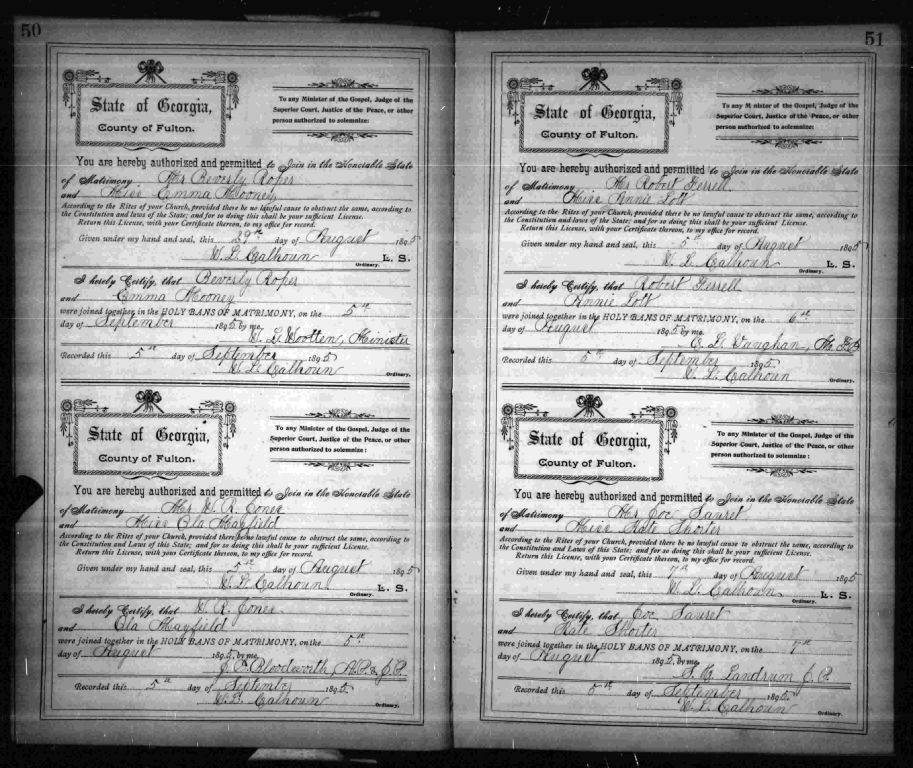 50
State of Georgia,
County of Fulton.
To any Minister of the Gospel, Judge of the
Superior Court, Justice of the Peace, or other
person authorized to solemnize:
You are hereby authorized and permitted to Join in the Honorable State
of Matrimony Mr Beverly Roper
and Miss Emma Mooney
According to the Rites of your Church, provided there be no lawful cause to obstruct the same, according to
the Constitution and Laws of the State; and for so doing this shall be your sufficient License.
Return this License, with your Certificate thereon, to my office for record.
Given under my hand and seal, this 29th day of August 1895
W. L. Calhoun L. S.
Ordinary.
I hereby Certify, that Beverly Roper
and Emma Mooney
were joined together in the HOLY BANS OF MATRIMONY, on the 5th
day of September 1895 by me,
Wootten, Minister
Recorded this 5th day of September 1895
W. L. Calhoun
Ordinary.
State of Georgia,
County of Fulton.
To any Minister of the Gospel, Judge of the
Superior Court, Justice of the Peace, or other
person authorized to solemnize:
You are hereby authorized and permitted to Join in the Honorable State
of Matrimony Mr W. R. Jones
and Miss Ola Mayfield
According to the Rites of your Church, provided there be no lawful cause to obstruct the same, according to
the Constitution and Laws of this State; and for so doing this shall be your sufficient License.
Return this License, with your Certificate thereon, to my office for record.
Given under my hand and seal, this 5th day of August 1895
W. L. Calhoun L. S.
Ordinary.
I hereby Certify, that W. R. Jones
and Ola Mayfield
were joined together in the HOLY BANS OF MATRIMONY, on the 5th
day of August 1895, by me,
Bloodworth, N.P. & J.P.
Recorded this 5th day of September 1895
W. L. Calhoun
Ordinary.
51
State of Georgia,
County of Fulton.
To any Minister of the Gospel, Judge of the
Superior Court, Justice of the Peace, or other
person authorized to solemnize:
You are hereby authorized and permitted to Join in the Honorable State
of Matrimony Mr Robert Ferrell
and Miss Annie Lott
According to the Rites of your Church, provided there be no lawful cause to obstruct the same, according to
the Constitution and laws of the State; and for so doing this shall be your sufficient License.
Return this License, with your Certificate thereon, to my office for record.
Given under my hand and seal, this 5th day of August 1895
W. L. Calhoun L. S.
Ordinary.
I hereby Certify, that Robert Ferrell
and Annie Lott
were joined together in the HOLY BANS OF MATRIMONY, on the 6th
day of August 1895 by me,
Vaughan,
Recorded this 5th day of September 1895
W. L. Calhoun
Ordinary.
State of Georgia,
County of Fulton.
To any Minister of the Gospel, Judge of the
Superior Court, Justice of the Peace, or other
person authorized to solemnize:
You are hereby authorized and permitted to Join in the Honorable State
of Matrimony Mr Joe
and Miss Kate Shorter
According to the Rites of your Church, provided there be no lawful cause to obstruct the same, according to
the Constitution and Laws of this State; and for so doing this shall be your sufficient License.
Return this License, with your Certificate thereon, to my office for record.
Given under my hand and seal, this 7th day of August 1895
W. L. Calhoun L. S.
Ordinary.
I hereby Certify, that Joe
and Kate Shorter
were joined together in the HOLY BANS OF MATRIMONY, on the 7th
day of August 1895, by me,
Landrum J. P.
Recorded this 5th day of September 1895
W. L. Calhoun
Ordinary.